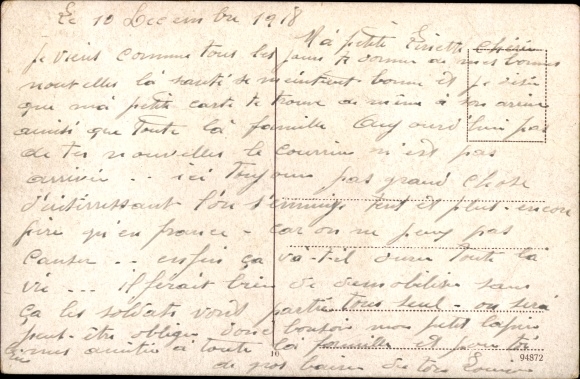 Le 10 Decembre 1918
Ma petite Finette chérie
je viens comme tous les jours te donner de mes bonnes
nouvelles la santé se maintient bonne et je désire
que ma petite carte te trouve de même à son arrivée
ainsi que toute la famille Aujourd'hui pas
de tes nouvelles le courrier n'est pas
arrivée .. ici toujours pas grand chose
d'intérressant l'on s'ennuye tant et plus - encore
pire qu'en france - car on ne peux pas
causer .. enfin ça va-t-il durer toute la
vie ... il ferait bien de demobiliser sans
ça les soldats vont partir tous seul - on sera
peut-être obliger donc bonsoir mon petit lapin
mes amitiés à toute la famille et pour toi
de gros baisers de ton
10
94872